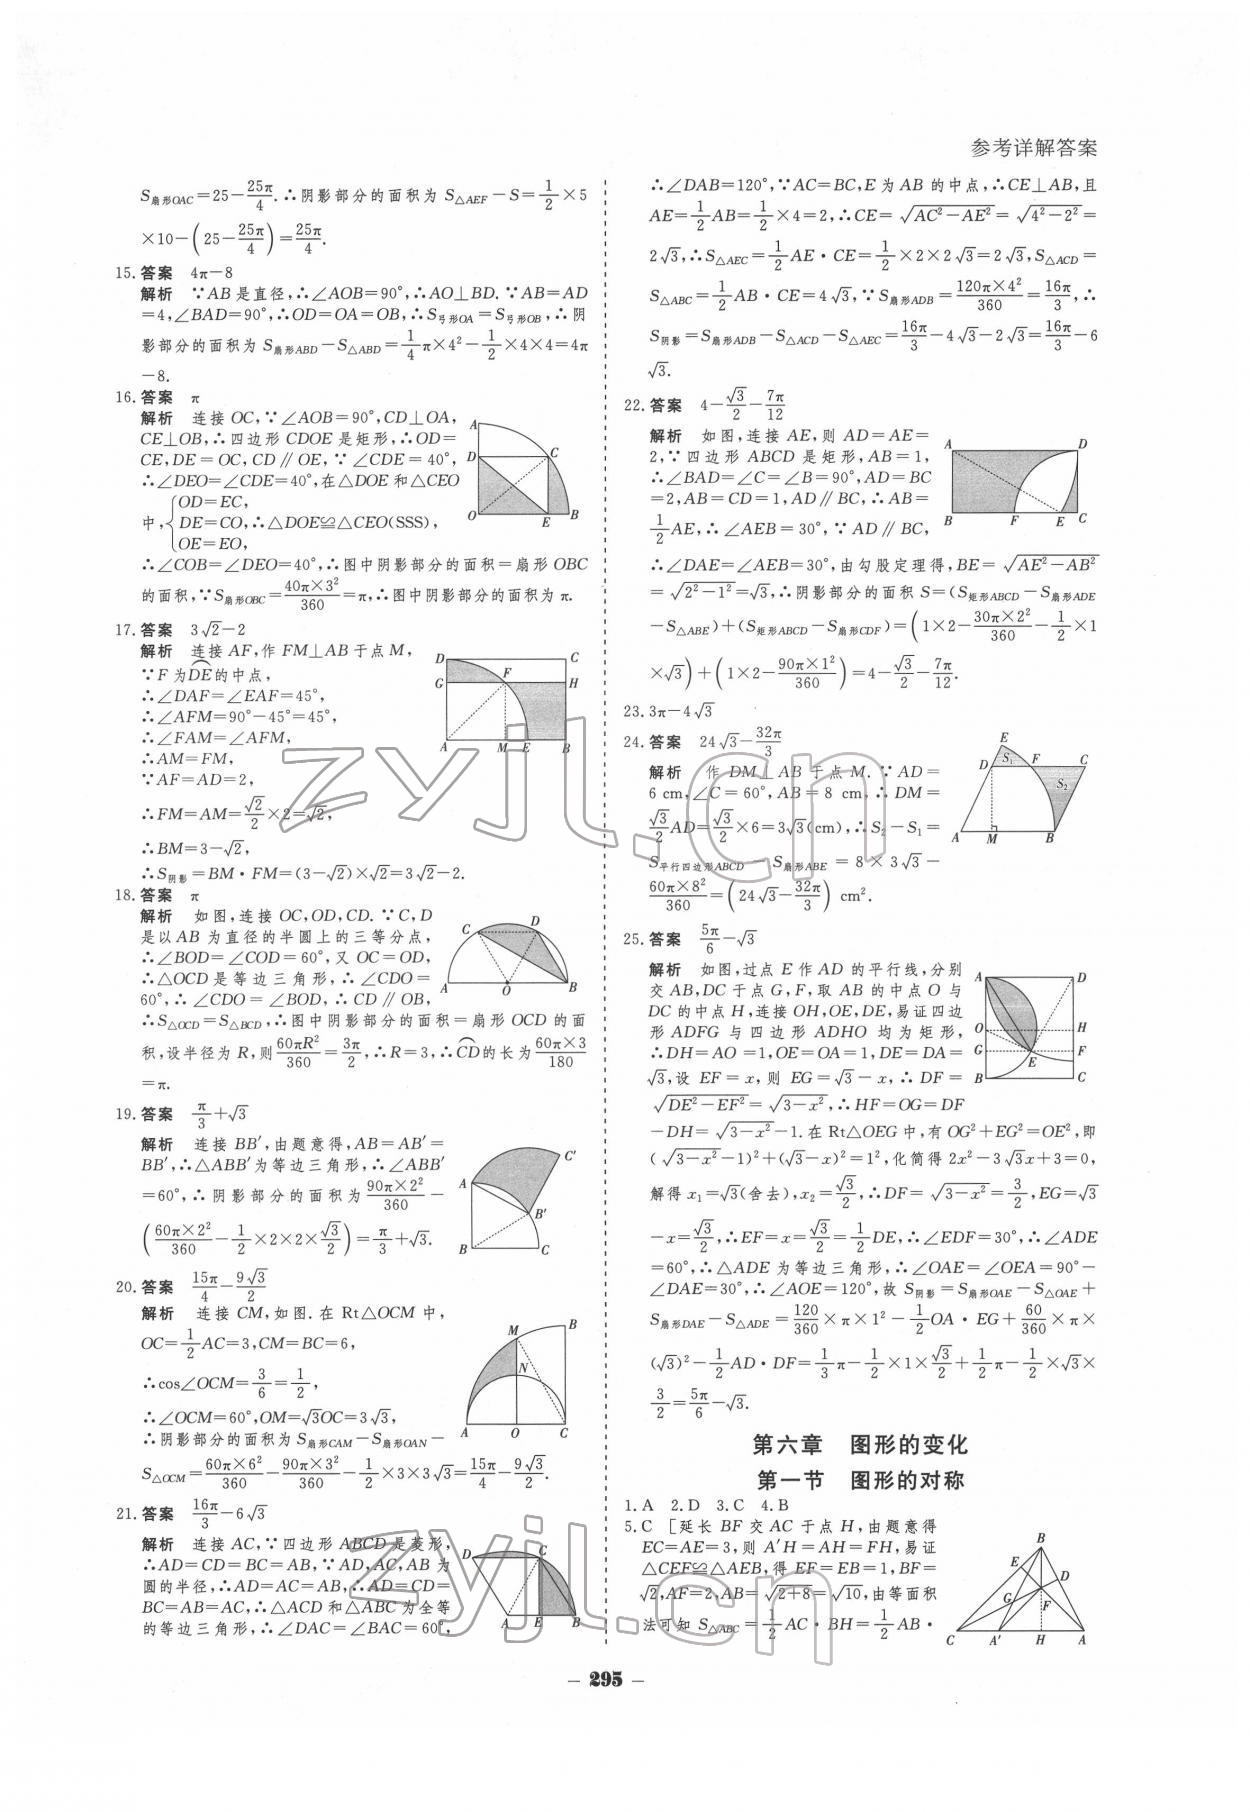 参考详解答案
S扇形OAC=25-25π/4.∴阴影部分的面积为 S△AEF-S=1/2×5
×10-(25-25π/4)=25π/4.
15.答案 4π-8
解析 ∵AB是直径,∴∠AOB=90°,∴AO⊥BD.∵AB=AD
=4,∠BAD=90°,∴OD=OA=OB,∴S弓形OA=S弓形OB,∴阴
影部分的面积为 S扇形ABD-S△ABD=1/4π×4²-1/2×4×4=4π
-8.
16.答案 π
解析 连接OC,∵∠AOB=90°,CD⊥OA,
CE⊥OB,∴四边形CDOE是矩形,∴OD=
CE,DE=OC,CD∥OE,∵∠CDE=40°,
∴∠DEO=∠CDE=40°,在△DOE和△CEO
中,{OD=EC,
DE=CO,∴△DOE≌△CEO(SSS),
OE=EO,
∴∠COB=∠DEO=40°,∴图中阴影部分的面积=扇形OBC
的面积,∵S扇形OBC=40π×3²/360=π,∴图中阴影部分的面积为π.
17.答案 3√2-2
解析 连接AF,作FM⊥AB于点M,
∵F为DE的中点,
∴∠DAF=∠EAF=45°,
∴∠AFM=90°-45°=45°,
∴∠FAM=∠AFM,
∴AM=FM,
∵AF=AD=2,
∴FM=AM=√2/2×2=√2,
∴BM=3-√2,
∴S阴影=BM·FM=(3-√2)×√2=3√2-2.
18.答案 π
解析 如图,连接OC,OD,CD.∵C,D
是以AB为直径的半圆上的三等分点,
∴∠BOD=∠COD=60°,又OC=OD,
∴△OCD是等边三角形,∴∠CDO=
60°,∴∠CDO=∠BOD,∴CD∥OB,
∴S△OCD=S△BCD,∴图中阴影部分的面积=扇形OCD的面
积,设半径为R,则60πR²/360=3π/2,∴R=3,∴CD的长为60π×3/180
=π.
19.答案 π/3+√3
解析 连接BB′,由题意得,AB=AB′=
BB′,∴△ABB′为等边三角形,∴∠ABB′
=60°,∴阴影部分的面积为90π×2²/360-
(60π×2²/360-1/2×2×2×√3/2)=π/3+√3.
20.答案 15π/4-9√3/2
解析 连接CM,如图.在Rt△OCM中,
OC=1/2AC=3,CM=BC=6,
∴cos∠OCM=3/6=1/2,
∴∠OCM=60°,OM=√3OC=3√3,
∴阴影部分的面积为S扇形CAM-S扇形OAN-
S△OCM=60π×6²/360-90π×3²/360-1/2×3×3√3=15π/4-9√3/2.
21.答案 16π/3-6√3
解析 连接AC,∵四边形ABCD是菱形,
∴AD=CD=BC=AB,∵AD,AC,AB为
圆的半径,∴AD=AC=AB,∴AD=CD=
BC=AB=AC,∴△ACD和△ABC为全等
的等边三角形,∴∠DAC=∠BAC=60°,
∴∠DAB=120°,∵AC=BC,E为AB的中点,∴CE⊥AB,且
AE=1/2AB=1/2×4=2,∴CE=√(AC²-AE²)=√(4²-2²)=
2√3,∴S△AEC=1/2AE·CE=1/2×2×2√3=2√3,S△ACD=
S△ABC=1/2AB·CE=4√3,∵S扇形ADB=120π×4²/360=16π/3,∴
S阴影=S扇形ADB-S△ACD-S△AEC=16π/3-4√3-2√3=16π/3-6
√3.
22.答案 4-√3/2-7π/12
解析 如图,连接AE,则AD=AE=
2,∵四边形ABCD是矩形,AB=1,
∴∠BAD=∠C=∠B=90°,AD=BC
=2,AB=CD=1,AD∥BC,∴AB=
1/2AE,∴∠AEB=30°,∵AD∥BC,
∴∠DAE=∠AEB=30°,由勾股定理得,BE=√(AE²-AB²)
=√(2²-1²)=√3,∴阴影部分的面积S=(S矩形ABCD-S扇形ADE
-S△ABE)+(S矩形ABCD-S扇形CDF)=(1×2-30π×2²/360-1/2×1
×√3)+(1×2-90π×1²/360)=4-√3/2-7π/12.
23.3π-4√3
24.答案 24√3-32π/3
解析 作DM⊥AB于点M.∵AD=
6 cm,∠C=60°,AB=8 cm,∴DM=
√3/2AD=√3/2×6=3√3(cm),∴S₂-S₁=
S平行四边形ABCD-S扇形ABE=8×3√3-
60π×8²/360=(24√3-32π/3) cm².
25.答案 5π/6-√3
解析 如图,过点E作AD的平行线,分别
交AB,DC于点G,F,取AB的中点O与
DC的中点H,连接OH,OE,DE,易证四边
形ADFG与四边形ADHO均为矩形,
∴DH=AO=1,OE=OA=1,DE=DA=
√3,设EF=x,则EG=√3-x,∴DF=
√(DE²-EF²)=√(3-x²),∴HF=OG=DF
-DH=√(3-x²)-1.在Rt△OEG中,有OG²+EG²=OE²,即
(√(3-x²)-1)²+(√3-x)²=1²,化简得2x²-3√3x+3=0,
解得x₁=√3(舍去),x₂=√3/2,∴DF=√(3-x²)=3/2,EG=√3
-x=√3/2,∴EF=x=√3/2=1/2DE,∴∠EDF=30°,∴∠ADE
=60°,∴△ADE为等边三角形,∴∠OAE=∠OEA=90°-
∠DAE=30°,∴∠AOE=120°,故S阴影=S扇形OAE-S△OAE+
S扇形DAE-S△ADE=120/360×π×1²-1/2OA·EG+60/360×π×
(√3)²-1/2AD·DF=1/3π-1/2×1×√3/2+1/2π-1/2×√3×
3/2=5π/6-√3.
第六章 图形的变化
第一节 图形的对称
1.A 2.D 3.C 4.B
5.C [延长BF交AC于点H,由题意得
EC=AE=3,则A′H=AH=FH,易证
△CEF≌△AEB,得EF=EB=1,BF=
√2,AF=2,AB=√(2+8)=√10,由等面积
法可知S△ABC=1/2AC·BH=1/2AB·
- 295 -
zyjl.cn
zyjl.cn